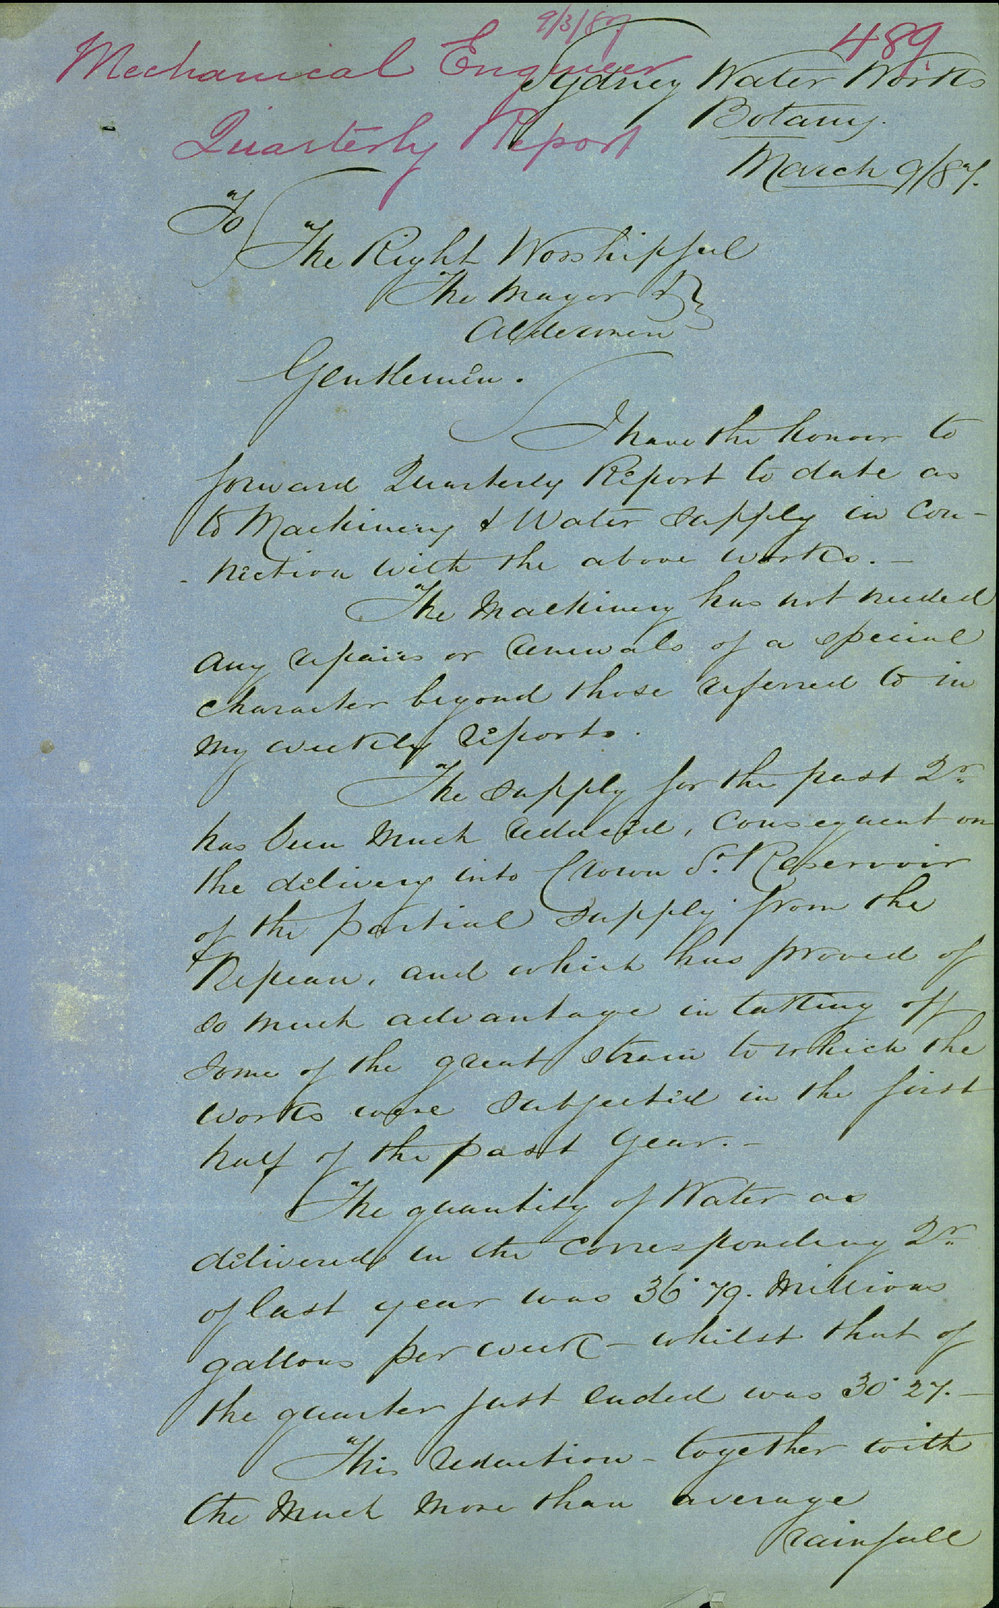 9/3/87
489
Mechanical Engineer
Quarterly Report
Sydney Water Works
Botany.
March 9/87.
To
The Right Worshipful
The Mayor &
Aldermen
Gentlemen.
I have the honour to
forward Quarterly Report to date as
to Machinery & Water supply in Con-
nection with the above works. —
The Machinery has not needed
any repairs or renewals of a special
character beyond those referred to in
my weekly reports.
The supply for the past Qr.
has been much reduced, consequent on
the delivery into Crown St. Reservoir
of the partial supply from the
Nepean, and which has proved of
so much advantage in taking off
some of the great strain to which the
works were subjected in the first
half of the past year. —
The quantity of Water as
delivered in the corresponding Qr.
of last year was 36.79. Millions
gallons per week — whilst that of
the quarter just ended was 30.27. —
This reduction — together with
the much more than average
rainfall